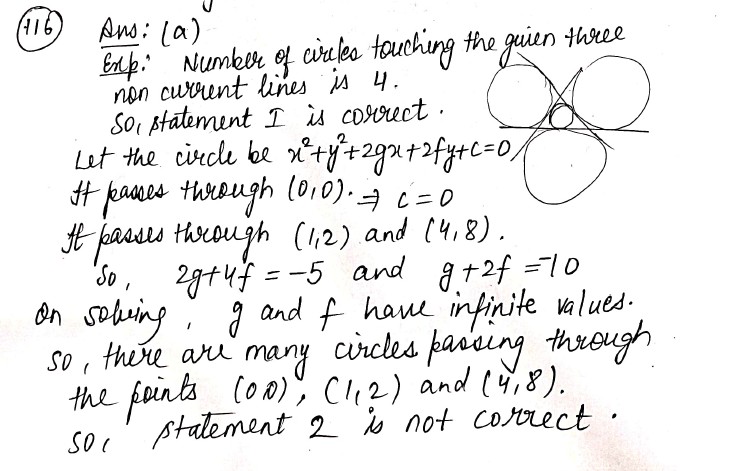 116 Ans: (a)
Exp: Number of circles touching the guien three
non current lines is 4.
So, statement I is correct.
Let the circle be x²+y²+2gx+2fy+c=0
It passes through (0,0). ⇒ c=0
It passes through (1,2) and (4,8).
So, 2g+4f = -5 and g+2f = -10
On solving, g and f have infinite values.
So, there are many circles passing through
the points (0 0), (1,2) and (4,8).
So, statement 2 is not correct.